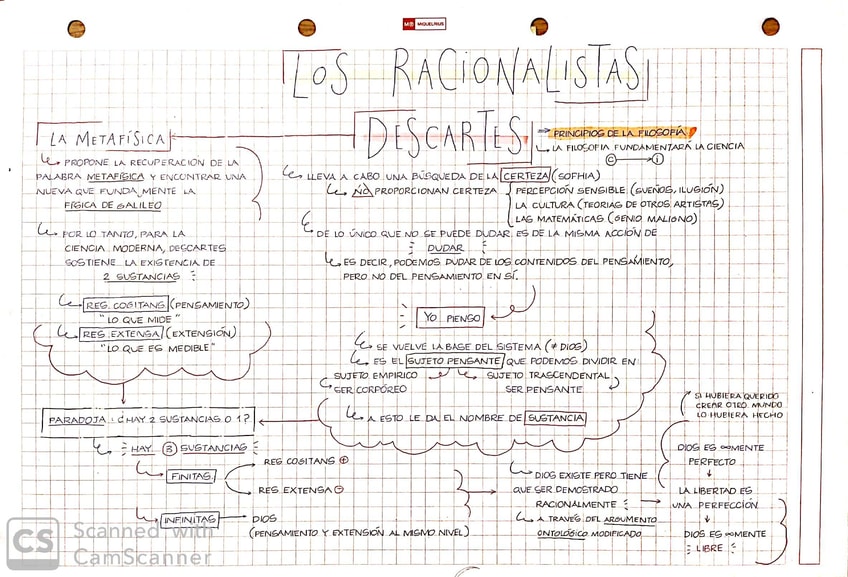 MIQUELRIUS
LOS RACIONALISTAS
LA METAFÍSICA
PROPONE LA RECUPERACIÓN DE LA
PALABRA METAFÍSICA Y ENCONTRAR UNA
NUEVA QUE FUNDAMENTE LA
FÍSICA DE GALILEO
POR LO TANTO, PARA LA
CIENCIA MODERNA, DESCARTES
SOSTIENE LA EXISTENCIA DE
2 SUSTANCIAS
RES COGITANS (PENSAMIENTO)
"LO QUE MIDE"
RES EXTENSA (EXTENSIÓN)
"LO QUE ES MEDIBLE"
DESCARTES
PRINCIPIOS DE LA FILOSOFÍA
LA FILOSOFIA FUNDAMENTARÁ LA CIENCIA
C → I
LLEVA A CABO UNA BÚSQUEDA DE LA CERTEZA (SOFHIA)
NO PROPORCIONAN CERTEZA
PERCEPCIÓN SENSIBLE (SUEÑOS, ILUSIÓN)
LA CULTURA (TEORIAS DE OTROS ARTISTAS)
LAS MATEMÁTICAS (GENIO MALIGNO)
DE LO ÚNICO QUE NO SE PUEDE DUDAR ES DE LA MISMA ACCIÓN DE
DUDAR
ES DECIR, PODEMOS DUDAR DE LOS CONTENIDOS DEL PENSAMIENTO,
PERO NO DEL PENSAMIENTO EN SÍ.
YO PIENSO
SE VUELVE LA BASE DEL SISTEMA (≠ DIOS)
ES EL SUJETO PENSANTE QUE PODEMOS DIVIDIR EN
SUJETO EMPIRICO
SER CORPÓREO
SUJETO TRASCENDENTAL
SER PENSANTE
A ESTO LE DA EL NOMBRE DE SUSTANCIA
PARADOJA: ¿HAY 2 SUSTANCIAS O 1?
HAY 3 SUSTANCIAS
FINITAS
RES COGITANS +
RES EXTENSA -
INFINITAS
DIOS
(PENSAMIENTO Y EXTENSIÓN AL MISMO NIVEL)
DIOS EXISTE PERO TIENE
QUE SER DEMOSTRADO
RACIONALMENTE
A TRAVÉS DEL ARGUMENTO
ONTOLÓGICO MODIFICADO
SI HUBIERA QUERIDO
CREAR OTRO MUNDO
LO HUBIERA HECHO
DIOS ES ∞MENTE
PERFECTO
LA LIBERTAD ES
UNA PERFECCIÓN
DIOS ES ∞MENTE
LIBRE
CS Scanned with
CamScanner